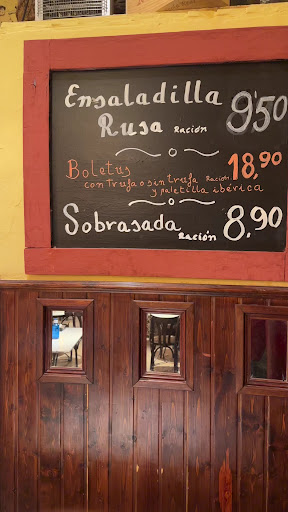 Ensaladilla 9'50
Rusa Ración
Boletus 18,90
con trufa o sin trufa Ración
y paletilla ibérica
Sobrasada 8,90
Ración